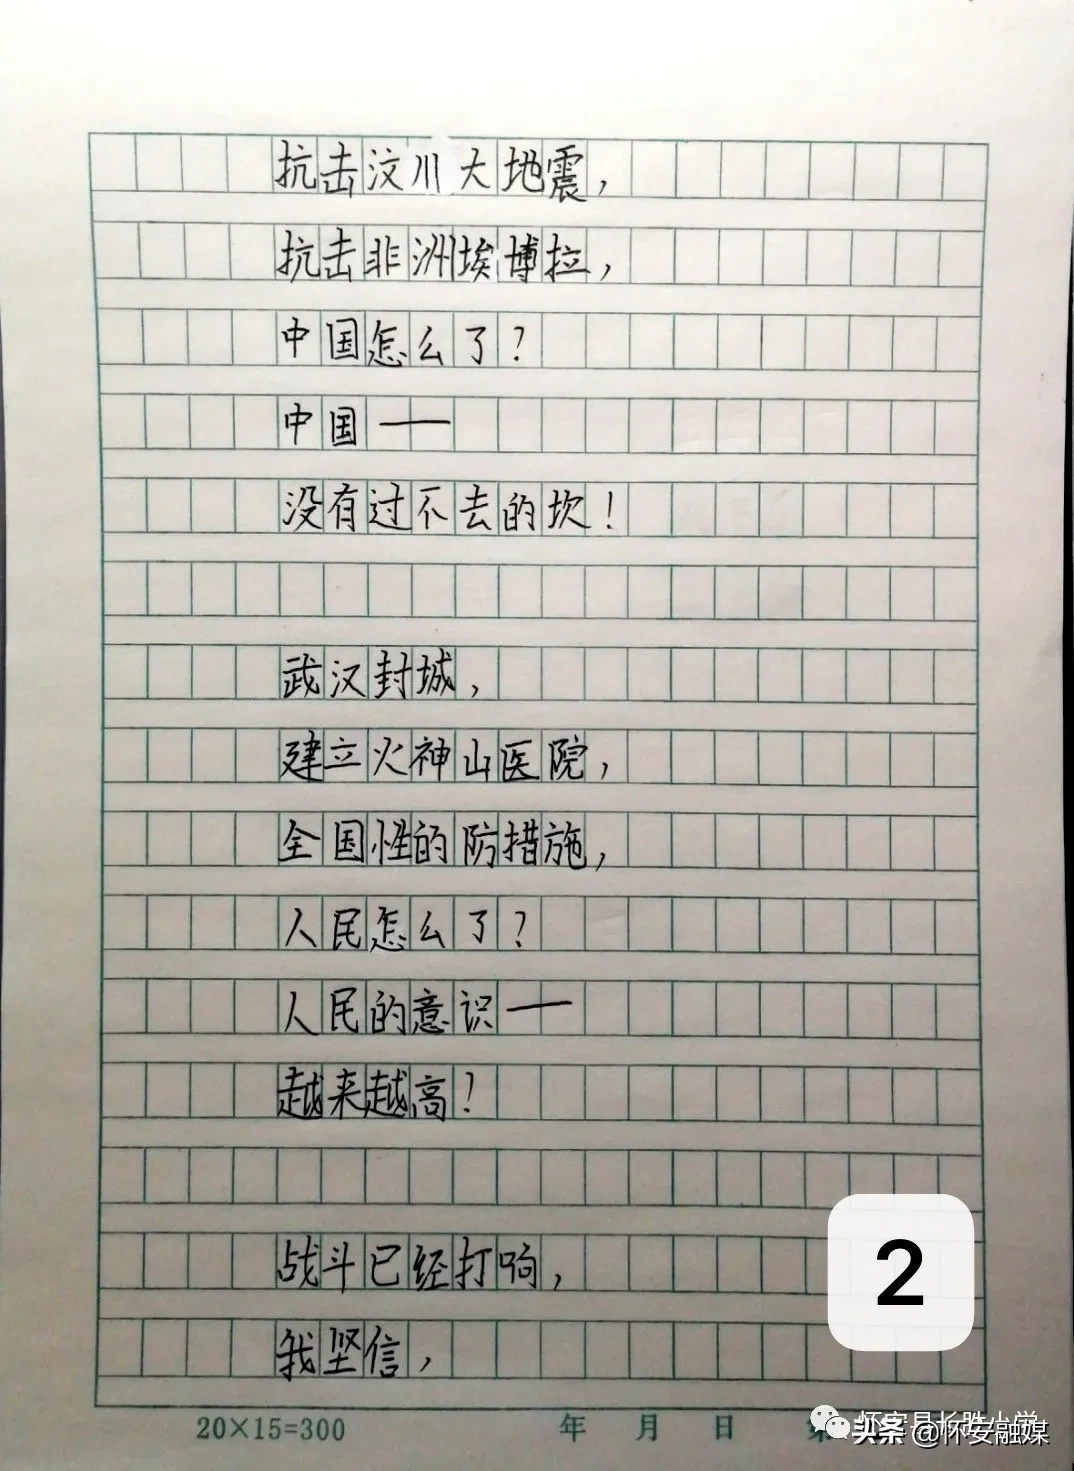 抗击汶川大地震，
抗击非洲埃博拉，
中国怎么了？
中国——
没有过不去的坎！
武汉封城，
建立火神山医院，
全国性的防措施，
人民怎么了？
人民的意识——
越来越高？
战斗已经打响，
我坚信，
2
20×15=300 年 月 日 第
怀安县长胜小学
头条 @怀安融媒